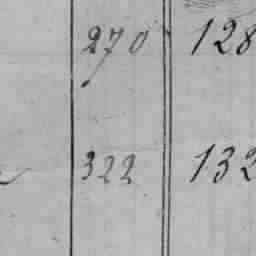 270 128
322 132